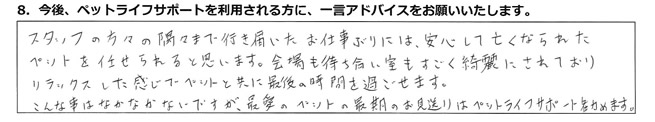 8．今後、ペットライフサポートを利用される方に、一言アドバイスをお願いいたします。
スタッフの方々の隅々まで行き届いたお仕事ぶりには、安心して亡くなられた
ペットを任せられると思います。会場も待ち合い室もすごく綺麗にされており
リラックスした感じでペットと共に最後の時間を過ごせます。
こんな事はなかなかないですが、最愛のペットの最期のお見送りはペットライフサポートを勧めます。